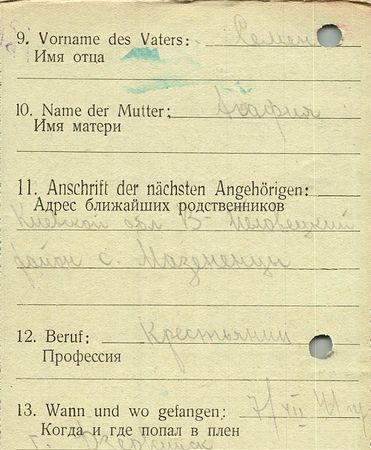 9. Vorname des Vaters: Семен
Имя отца
10. Name der Mutter: Агафия
Имя матери
11. Anschrift der nächsten Angehörigen:
Адрес ближайших родственников
Киевской обл В-Половецкий
район с.
12. Beruf: Крестьянин
Профессия
13. Wann und wo gefangen: 7/VII
Когда и где попал в плен
г.